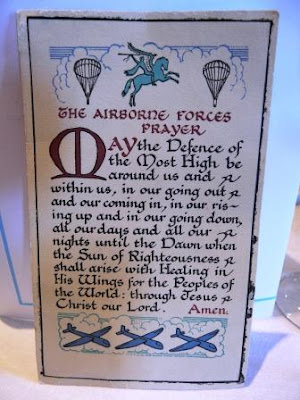 THE AIRBORNE FORCES
PRAYER
May the Defence of
the Most High be
around us and
within us, in our going out
and our coming in, in our ris-
ing up and in our going down,
all our days and all our
nights until the Dawn when
the Sun of Righteousness
shall arise with Healing in
His Wings for the Peoples of
the World: through Jesus
Christ our Lord. Amen.